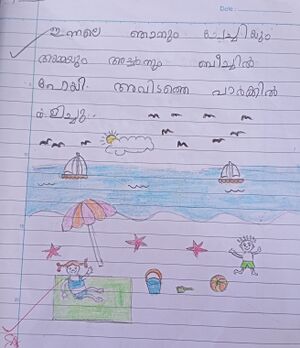 Date :
ഇന്നലെ ഞാനും ചേച്ചിയും
അമ്മയും അച്ഛനും ബീച്ചിൽ
പോയി. അവിടത്തെ പാർക്കിൽ
കളിച്ചു.